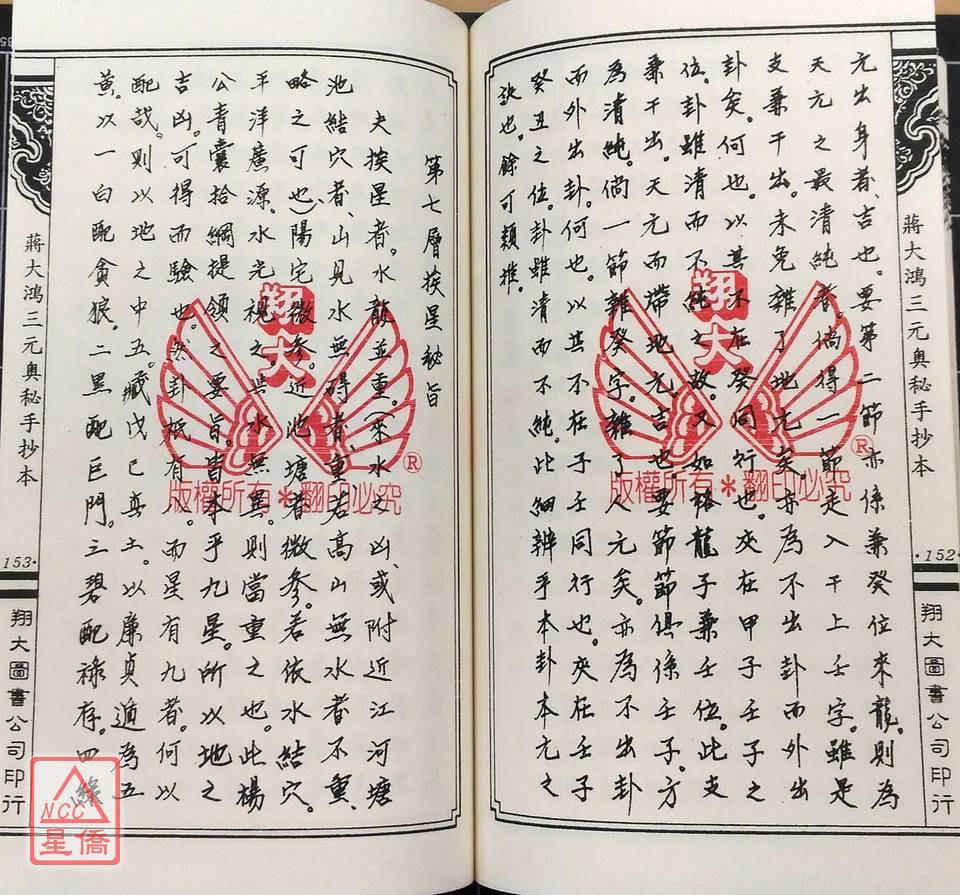 元出身者、吉也。要第二節亦係兼癸位來龍。則為
天元之最清純者。倘得一節走入干上壬字。雖是
支兼干出。未免雜了地元矣。亦為不出卦而外出
卦矣。何也。以其不在癸同行也。夾在甲子壬子之
位。卦雖清而不純之故。又如格龍子兼壬位。此支
兼干出。天元而帶地元。吉也。要節節俱係壬子。方
為清純。倘一節雜癸字。雜了人元矣。亦為不出卦
而外出卦。何也。以其不在子壬同行也。夾在壬子
癸丑之位。卦雖清而不純。此細辨乎本卦本元之
訣也。餘可類推。
蔣大鴻三元奧秘手抄本
·152·
翔大圖書公司印行
第七層挨星秘旨
夫挨星者。水龍並重。(來水之凶、或附近江河塘
池結穴者、山見水無碍者、重若高山無水者不重、
略之可也、)陽宅微參。近池塘者微參。若依水結穴。
平洋廣源。水光視之與水無異。則當重之也。此楊
公青囊拾綱提領之要旨。皆本乎九星。所以地之
吉凶。可得而驗也。然卦祇有八。而星有九者。何以
配哉。則以地之中五。藏戊己真土。以廉貞遁為五
黃。以一白配貪狼。二黑配巨門。三碧配祿存。四綠
蔣大鴻三元奧秘手抄本
153·
翔大圖書公司印行
翔大
®
版權所有＊翻印必究
翔大
®
版權所有＊翻印必究
NCC
星僑